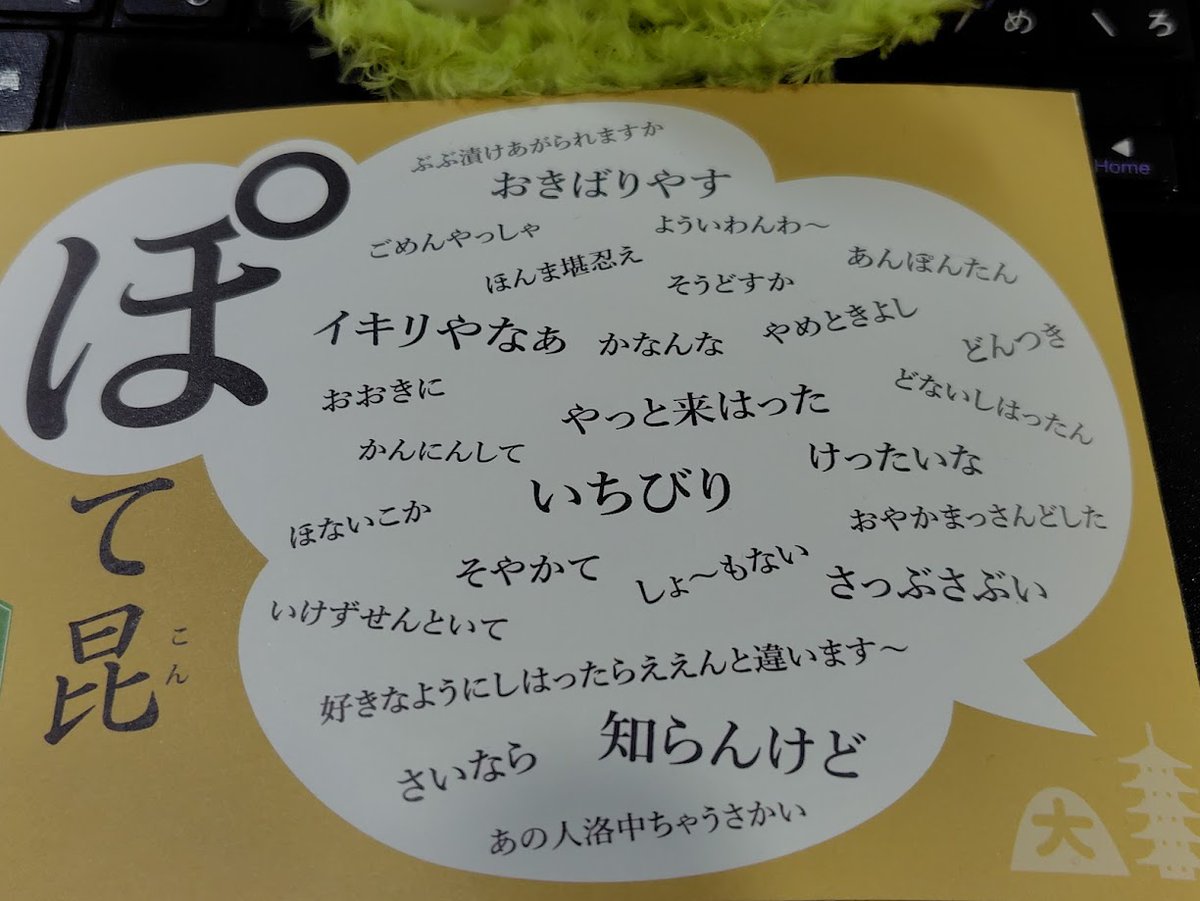 め
ろ
Home
ぽて昆
こん
ぶぶ漬けあがられますか
おきばりやす
ごめんやっしゃ
よういわんわ〜
ほんま堪忍え
そうどすか
あんぽんたん
イキリやなぁ
かなんな
やめときよし
どんつき
おおきに
やっと来はった
どないしはったん
かんにんして
いちびり
けったいな
ほないこか
おやかまっさんどした
そやかて
しょ〜もない
さっぶさぶい
いけずせんといて
好きなようにしはったらええんと違います〜
さいなら
知らんけど
あの人洛中ちゃうさかい
大